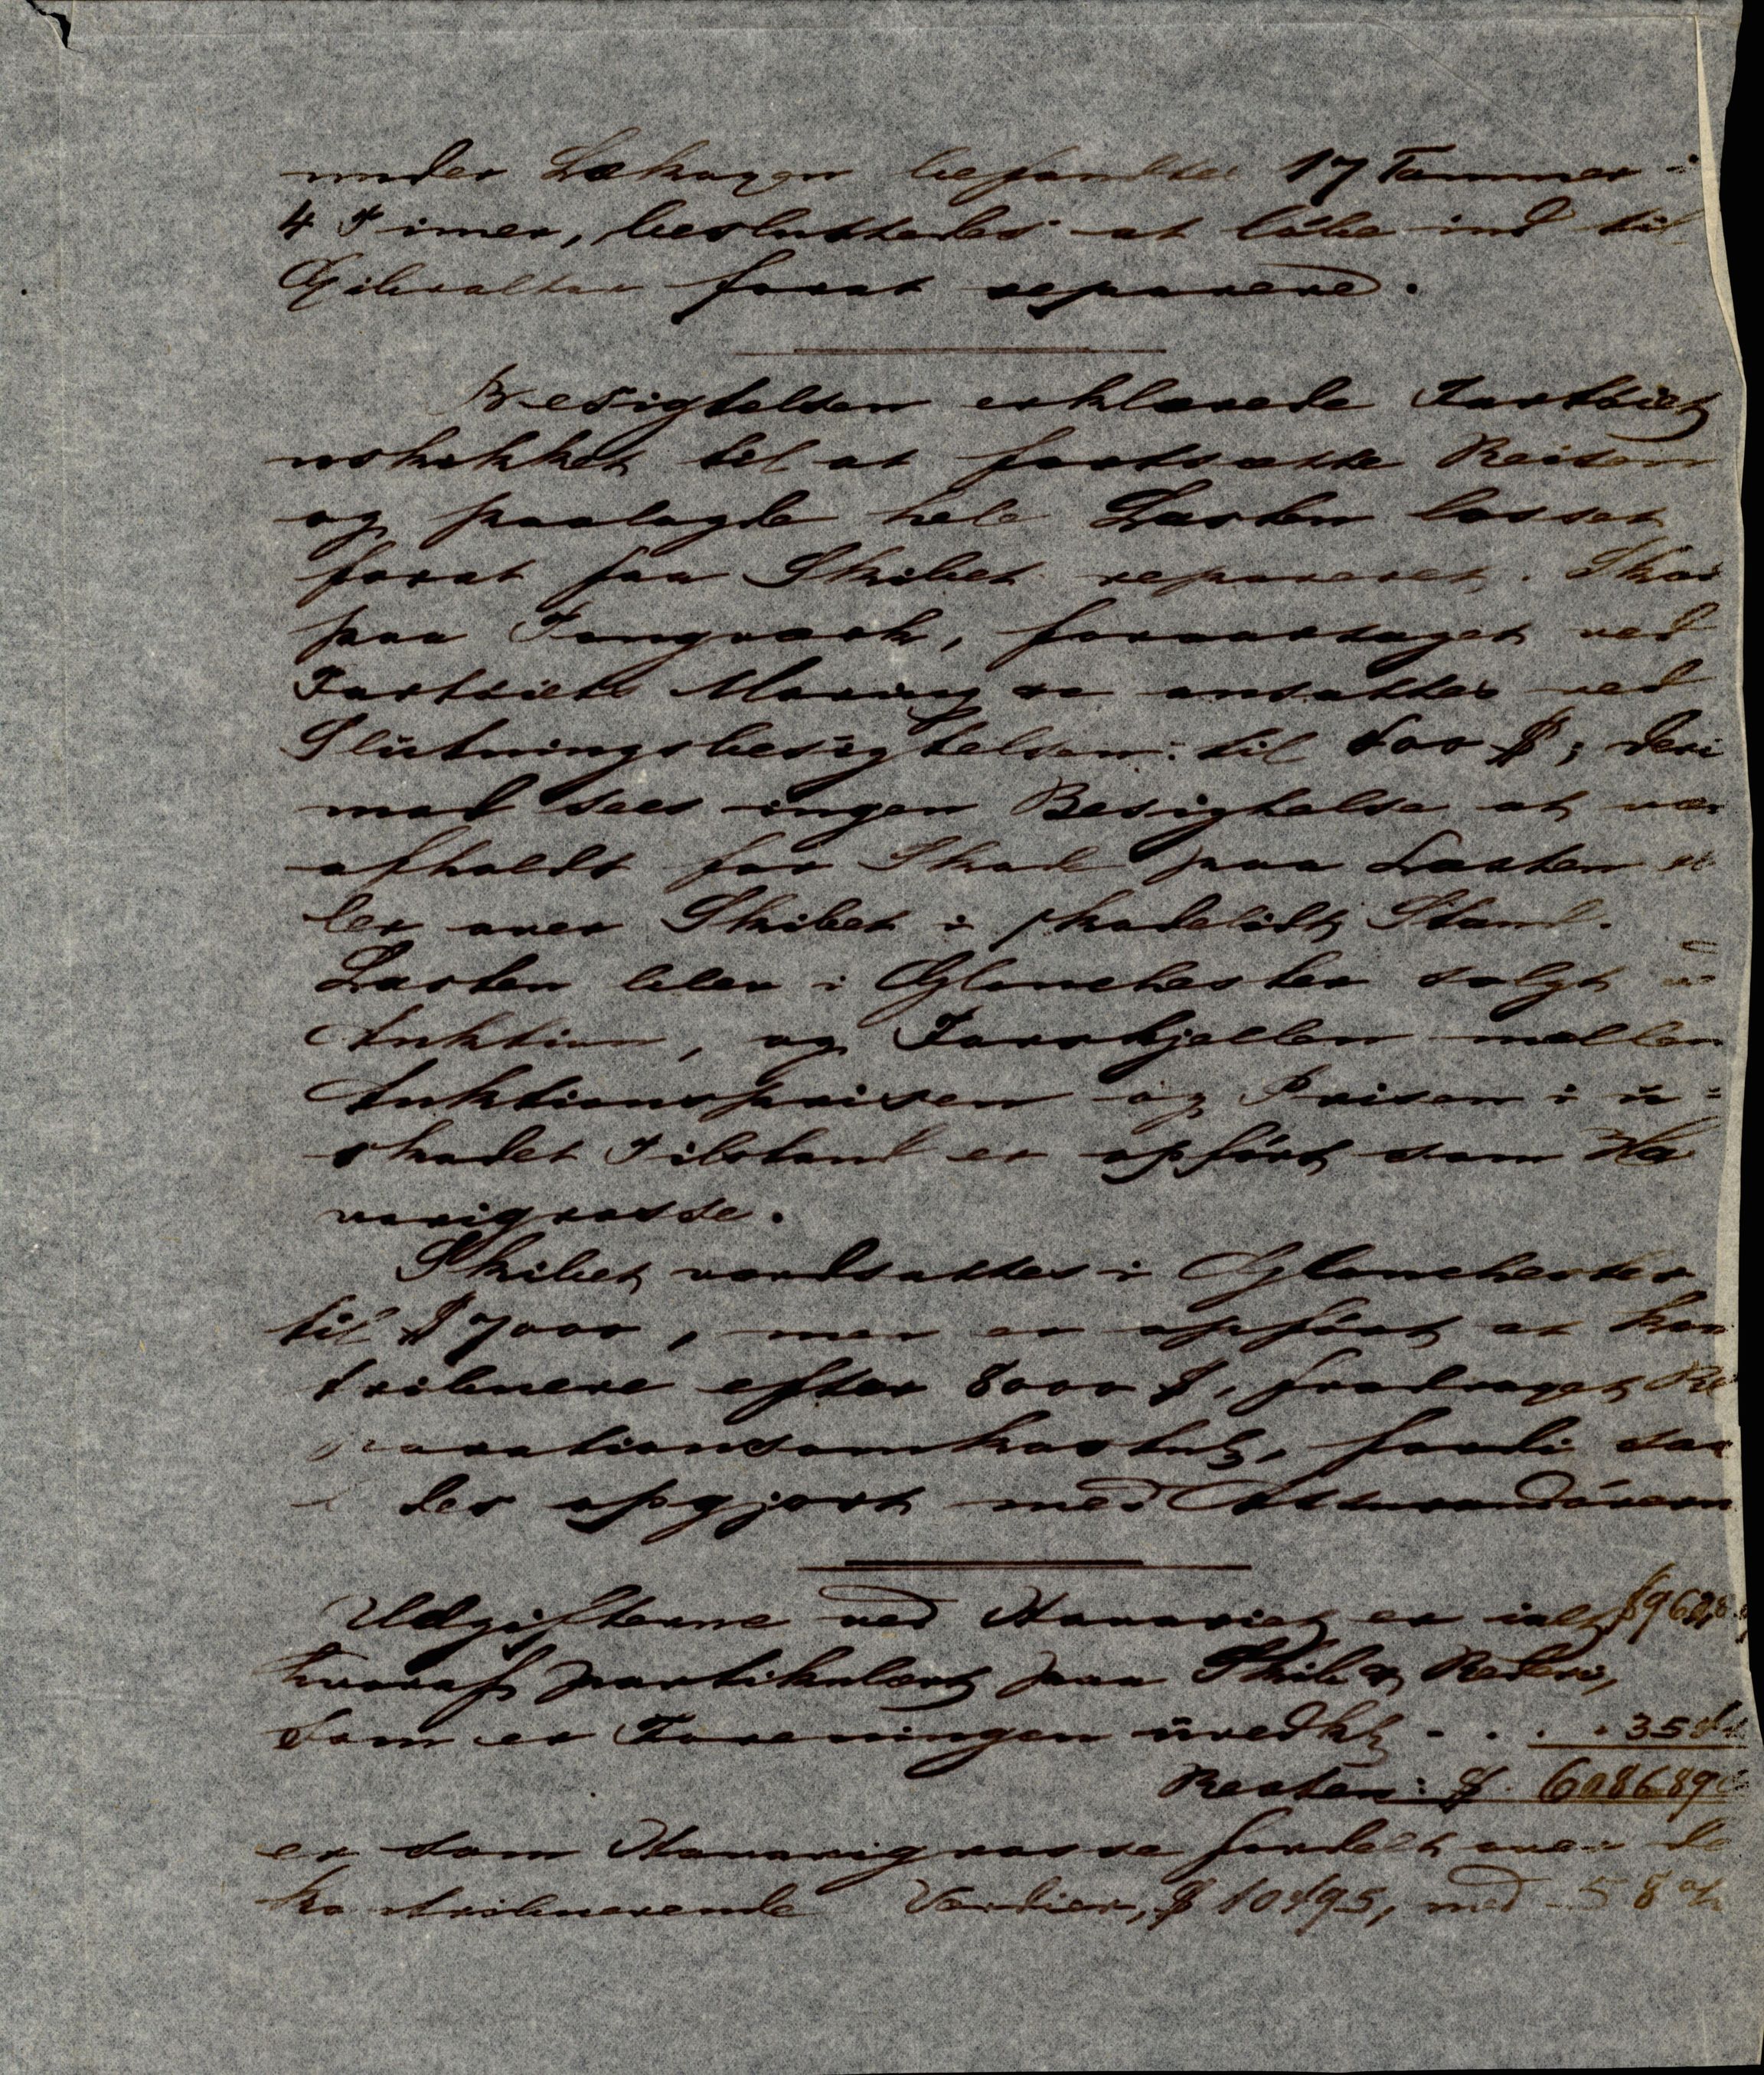 under Lækagen befandtes 17 Tommer i
4 Timer, besluttedes at løbe ind til
Gibraltar forat reparere.
Besigtelsen erklærede Fartøiet
uskikket til at fortsætte Reisen
og paalagde hele Lasten losset
forat faa Skibet repareret. Skad
paa Tougværk, foraarsaget ved
Fartøiets Moring er ansattes ved
Slutningsbesigtelsen: til 400 $; deri
mod sees ingen Besigtelse at vær
afholdt for Skade paa Lasten el
ler over Skibet i skadelidt Stand.
Lasten blev i Glouchester solgt v
Auktion, og Forskjellen mellem
Auktionsprisen og Prisen i u=
skadet Tilstand er opført som Ha
varigrosse.
Skibet værdsattes i Glouchester
til $ 7000, men er opført at kon
tribuere efter 8000 $, fradraget Re
parationsomkostng, fordi saa
des opgjort med Assurandørern
Udgifterne ved Havariet er ialt
hvoraf partikulært paa Skib & Rederi,
som er Foreningen uvedk - . . .
Resten: $. 6086.89
er som Havarigrosse fordelt over de
kontribuerende Værdier, $ 10495, med 58 %